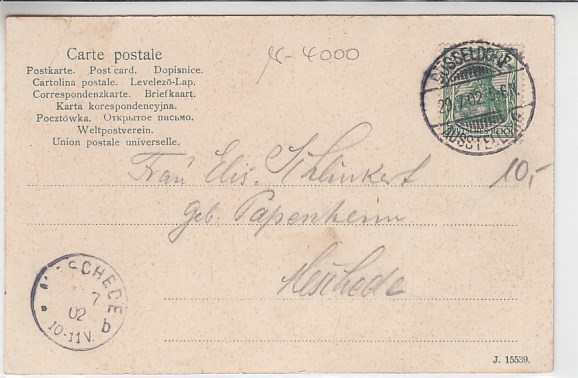 Carte postale
Postkarte. Post card. Dopisnice.
Cartolina postale. Levelező-Lap.
Correspondenzkarte. Briefkaart.
Karta korespondencyjna.
Pocztówka. Открытое письмо.
Weltpostverein.
Union postale universelle.
4000
DÜSSELDORF
02
AUSSTELLUNG
Frau Elis. Schlinkert
10,-
geb. Papenheim
Meschede
MESCHEDE
7
02
10-11V.
b
J. 15539.